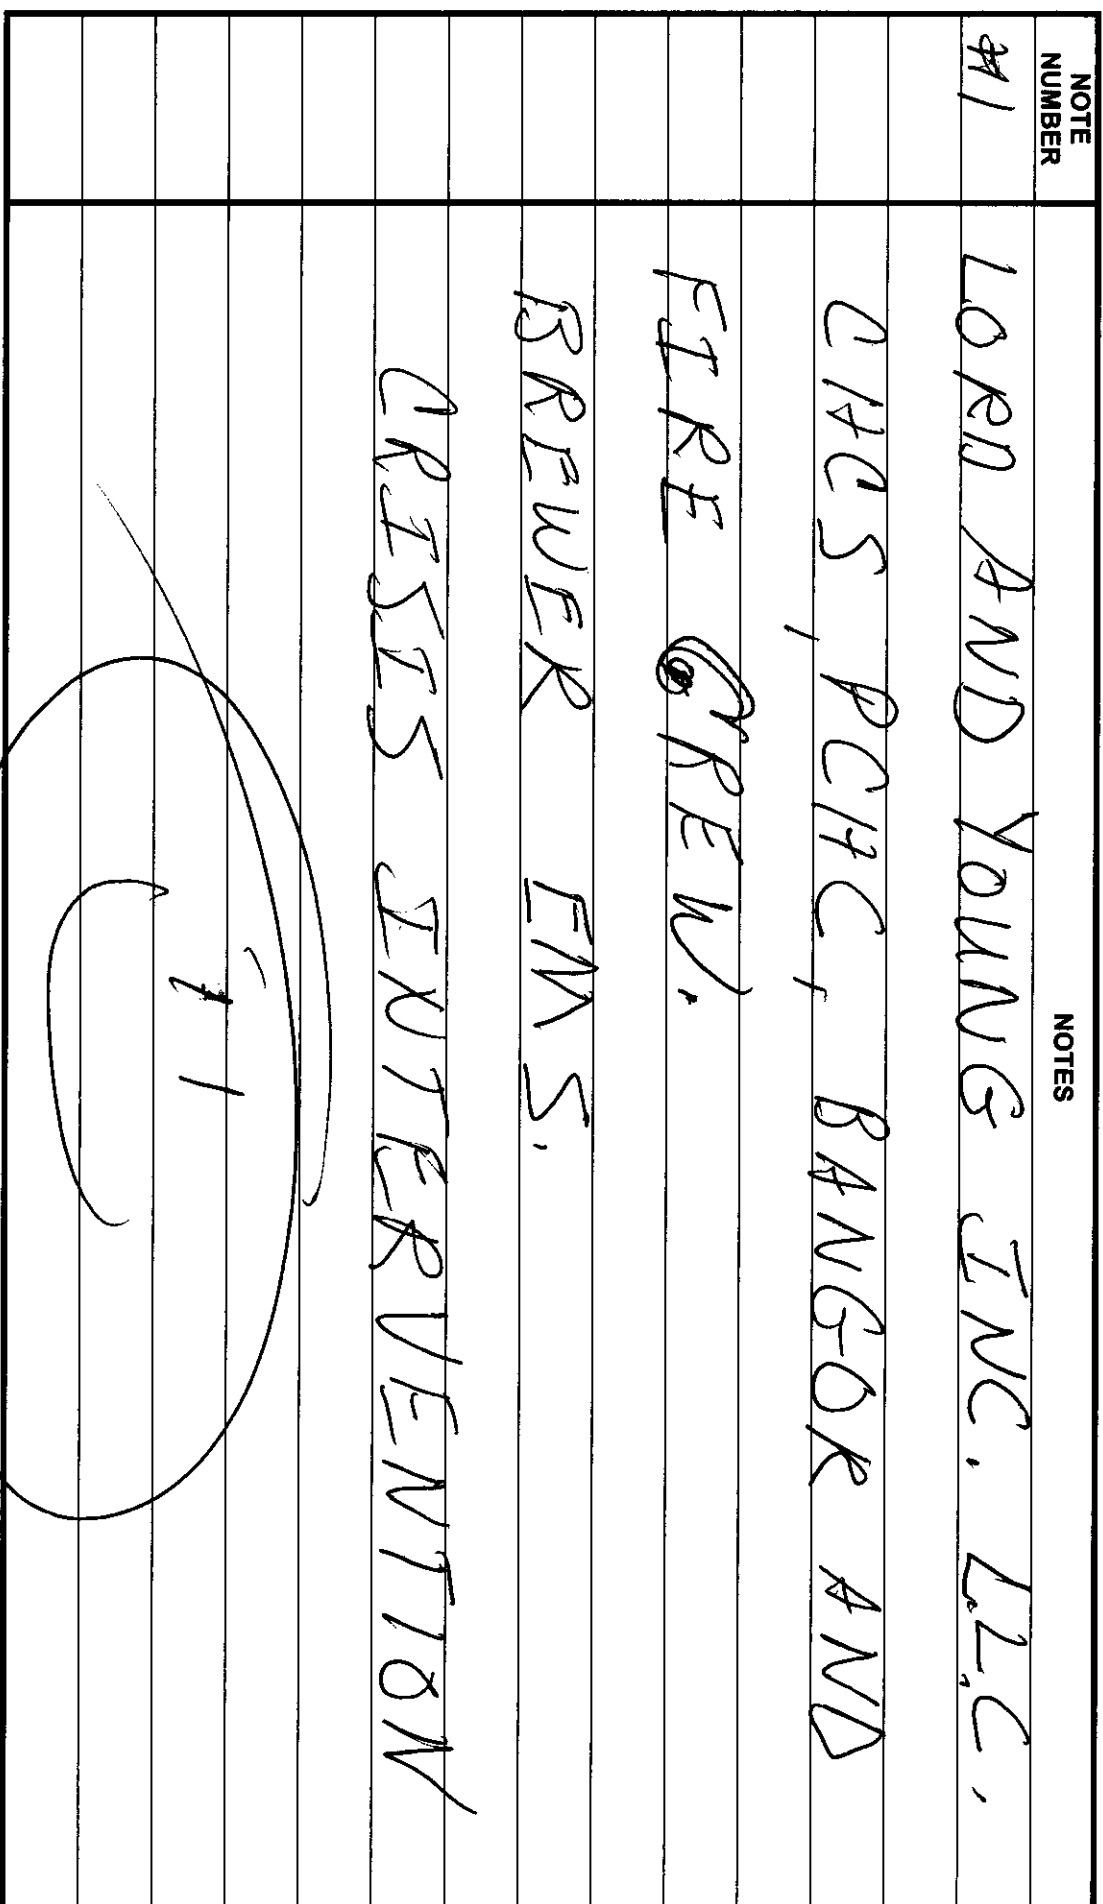 NOTE NUMBER
NOTES
#1 LORD AND YOUNG INC. L.L.C.,
CHCS, PCHC, BANGOR AND
FIRE CREW.
BREWER EMS.
CRISIS INTERVENTION